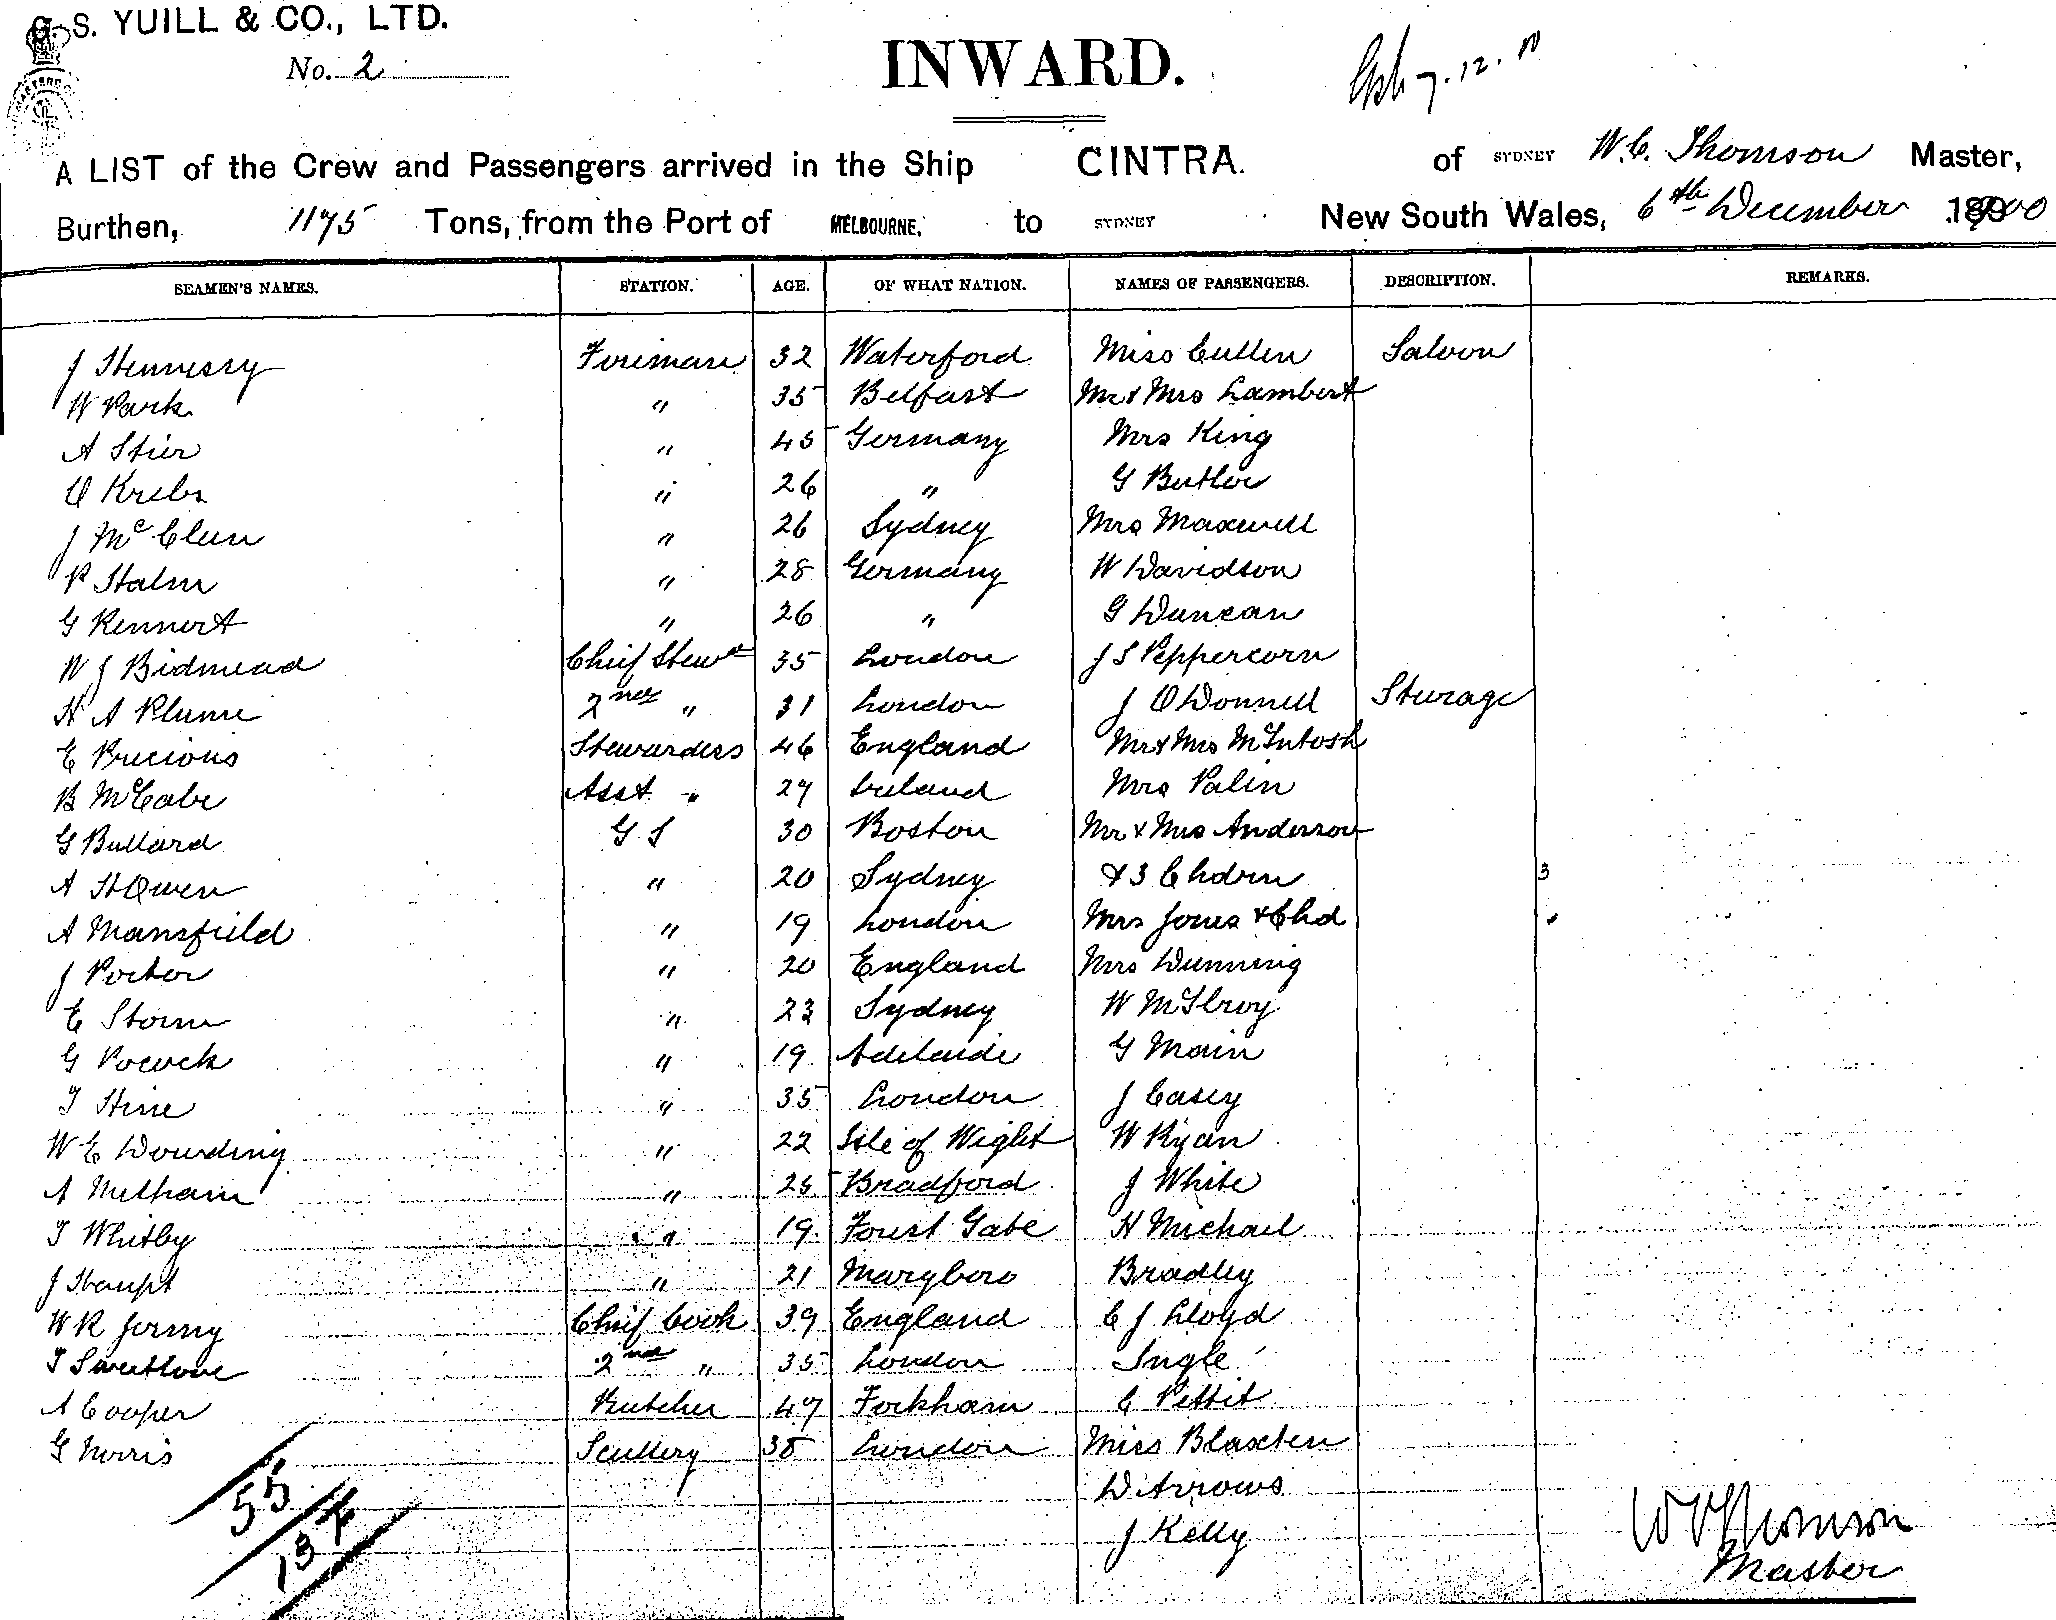 G. S. YUILL & CO., LTD.
No. 2
INWARD.
7.12.
A LIST of the Crew and Passengers arrived in the Ship CINTRA. of SYDNEY W. C. Thomson Master,
Burthen, 1175 Tons, from the Port of MELBOURNE, to SYDNEY New South Wales, 6th December 1900
SEAMEN'S NAMES. STATION. AGE. OF WHAT NATION. NAMES OF PASSENGERS. DESCRIPTION. REMARKS.
J Hennessy Fireman 32 Waterford Miss Cullen Saloon
W Park " 35 Belfast Mr & Mrs Lambert
A Stier " 45 Germany Mrs King
O Krebs " 26 " G Butler
J McClun " 26 Sydney Mrs Maxwell
P Stalm " 28 Germany W Davidson
G Rennert " 26 " G Duncan
W J Bidmead Chief Stewd 35 London J S Peppercorn
H A Plume 2nd " 31 London J O'Donnell Sturage
E Precious Stewardess 46 England Mr & Mrs McIntosh
B McCabe Asst " 27 Ireland Mrs Palin
G Bullard G S 30 Boston Mr & Mrs Anderson
A StOwen " 20 Sydney & 3 Chdrn 3
A Mansfield " 19 London Mrs Jones & Chd
J Porter " 20 England Mrs Dunning
E Storm " 23 Sydney W McIlroy
G Pocock " 19 Adelaide G Main
T Hine " 35 London J Casey
W E Dowding " 22 Isle of Wight W Ryan
A Metham " 25 Bradford J White
T Whitby " 19 Forest Gate H Michael
J Haupt " 21 Maryboro Bradley
W R Jermy Chief Cook 39 England C J Lloyd
T Sweetlove 2nd " 35 London Ingle
A Cooper Butcher 47 Fockham C Pettit
G Norris Scullery 38 London Miss Blaxten
D Arrows
J Kelly
55
134
W C Thomson
Master